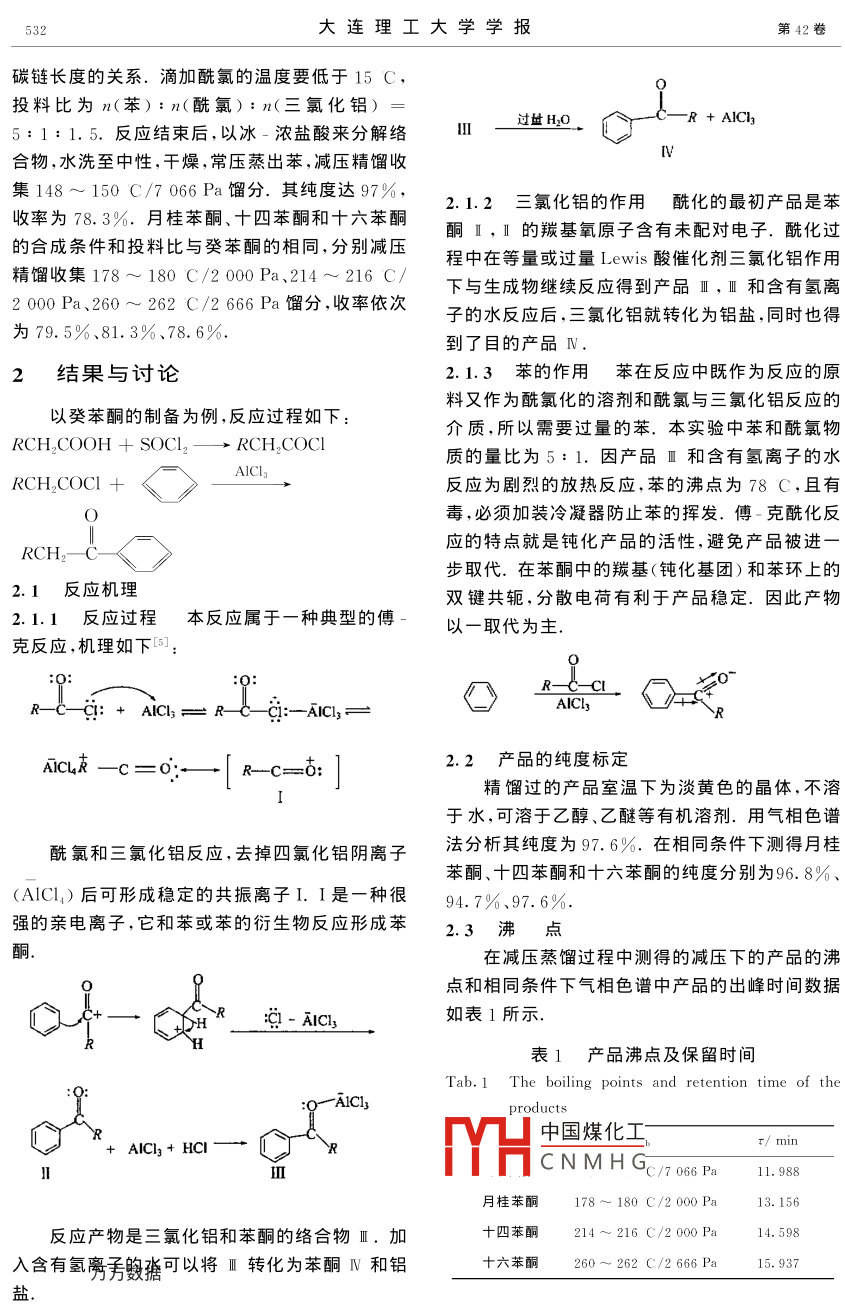 532
大连理工大学学报
第42卷
碳链长度的关系. 滴加酰氯的温度要低于 15 ℃,
投料比为 n(苯)∶n(酰氯)∶n(三氯化铝) =
5∶1∶1.5. 反应结束后,以冰-浓盐酸来分解络
合物,水洗至中性,干燥,常压蒸出苯,减压精馏收
集 148 ~ 150 ℃/7 066 Pa 馏分. 其纯度达 97%,
收率为 78.3%. 月桂苯酮、十四苯酮和十六苯酮
的合成条件和投料比与癸苯酮的相同,分别减压
精馏收集 178 ~ 180 ℃/2 000 Pa、214 ~ 216 ℃/
2 000 Pa、260 ~ 262 ℃/2 666 Pa 馏分,收率依次
为 79.5%、81.3%、78.6%.
2 结果与讨论
以癸苯酮的制备为例,反应过程如下:
RCH₂COOH + SOCl₂ ⟶ RCH₂COCl
RCH₂COCl + AlCl₃ ⟶
O
RCH₂—C—
2.1 反应机理
2.1.1 反应过程 本反应属于一种典型的傅-
克反应,机理如下[5]:
:O: :O:
R—C—Cl: + AlCl₃ ⇌ R—C—Cl:—AlCl₃ ⇌
AlCl₄ R—C=O: ⟷ [R—C=O:]
I
酰氯和三氯化铝反应,去掉四氯化铝阴离子
(AlCl₄) 后可形成稳定的共振离子 I. I 是一种很
强的亲电离子,它和苯或苯的衍生物反应形成苯
酮.
O O
C+ ⟶ R H :Cl - AlCl₃
R H
:O: :O—AlCl₃
C R + AlCl₃ + HCl ⟶ C R
II III
反应产物是三氯化铝和苯酮的络合物 Ⅲ. 加
入含有氢离子的水可以将 Ⅲ 转化为苯酮 Ⅳ 和铝
盐.
万方数据
O
III 过量 H₂O ⟶ C—R + AlCl₃
IV
2.1.2 三氯化铝的作用 酰化的最初产品是苯
酮 Ⅱ,Ⅱ 的羰基氧原子含有未配对电子. 酰化过
程中在等量或过量 Lewis 酸催化剂三氯化铝作用
下与生成物继续反应得到产品 Ⅲ,Ⅲ 和含有氢离
子的水反应后,三氯化铝就转化为铝盐,同时也得
到了目的产品 Ⅳ.
2.1.3 苯的作用 苯在反应中既作为反应的原
料又作为酰氯化的溶剂和酰氯与三氯化铝反应的
介质,所以需要过量的苯. 本实验中苯和酰氯物
质的量比为 5∶1. 因产品 Ⅲ 和含有氢离子的水
反应为剧烈的放热反应,苯的沸点为 78 ℃,且有
毒,必须加装冷凝器防止苯的挥发. 傅-克酰化反
应的特点就是钝化产品的活性,避免产品被进一
步取代. 在苯酮中的羰基(钝化基团)和苯环上的
双键共轭,分散电荷有利于产品稳定. 因此产物
以一取代为主.
O
R—C—Cl
AlCl₃
O⁻
C+
R
2.2 产品的纯度标定
精馏过的产品室温下为淡黄色的晶体,不溶
于水,可溶于乙醇、乙醚等有机溶剂. 用气相色谱
法分析其纯度为 97.6%. 在相同条件下测得月桂
苯酮、十四苯酮和十六苯酮的纯度分别为96.8%、
94.7%、97.6%.
2.3 沸 点
在减压蒸馏过程中测得的减压下的产品的沸
点和相同条件下气相色谱中产品的出峰时间数据
如表 1 所示.
表 1 产品沸点及保留时间
Tab.1 The boiling points and retention time of the
products
中国煤化工
CNMHG
b τ/ min
℃/7 066 Pa 11.988
月桂苯酮 178 ~ 180 ℃/2 000 Pa 13.156
十四苯酮 214 ~ 216 ℃/2 000 Pa 14.598
十六苯酮 260 ~ 262 ℃/2 666 Pa 15.937